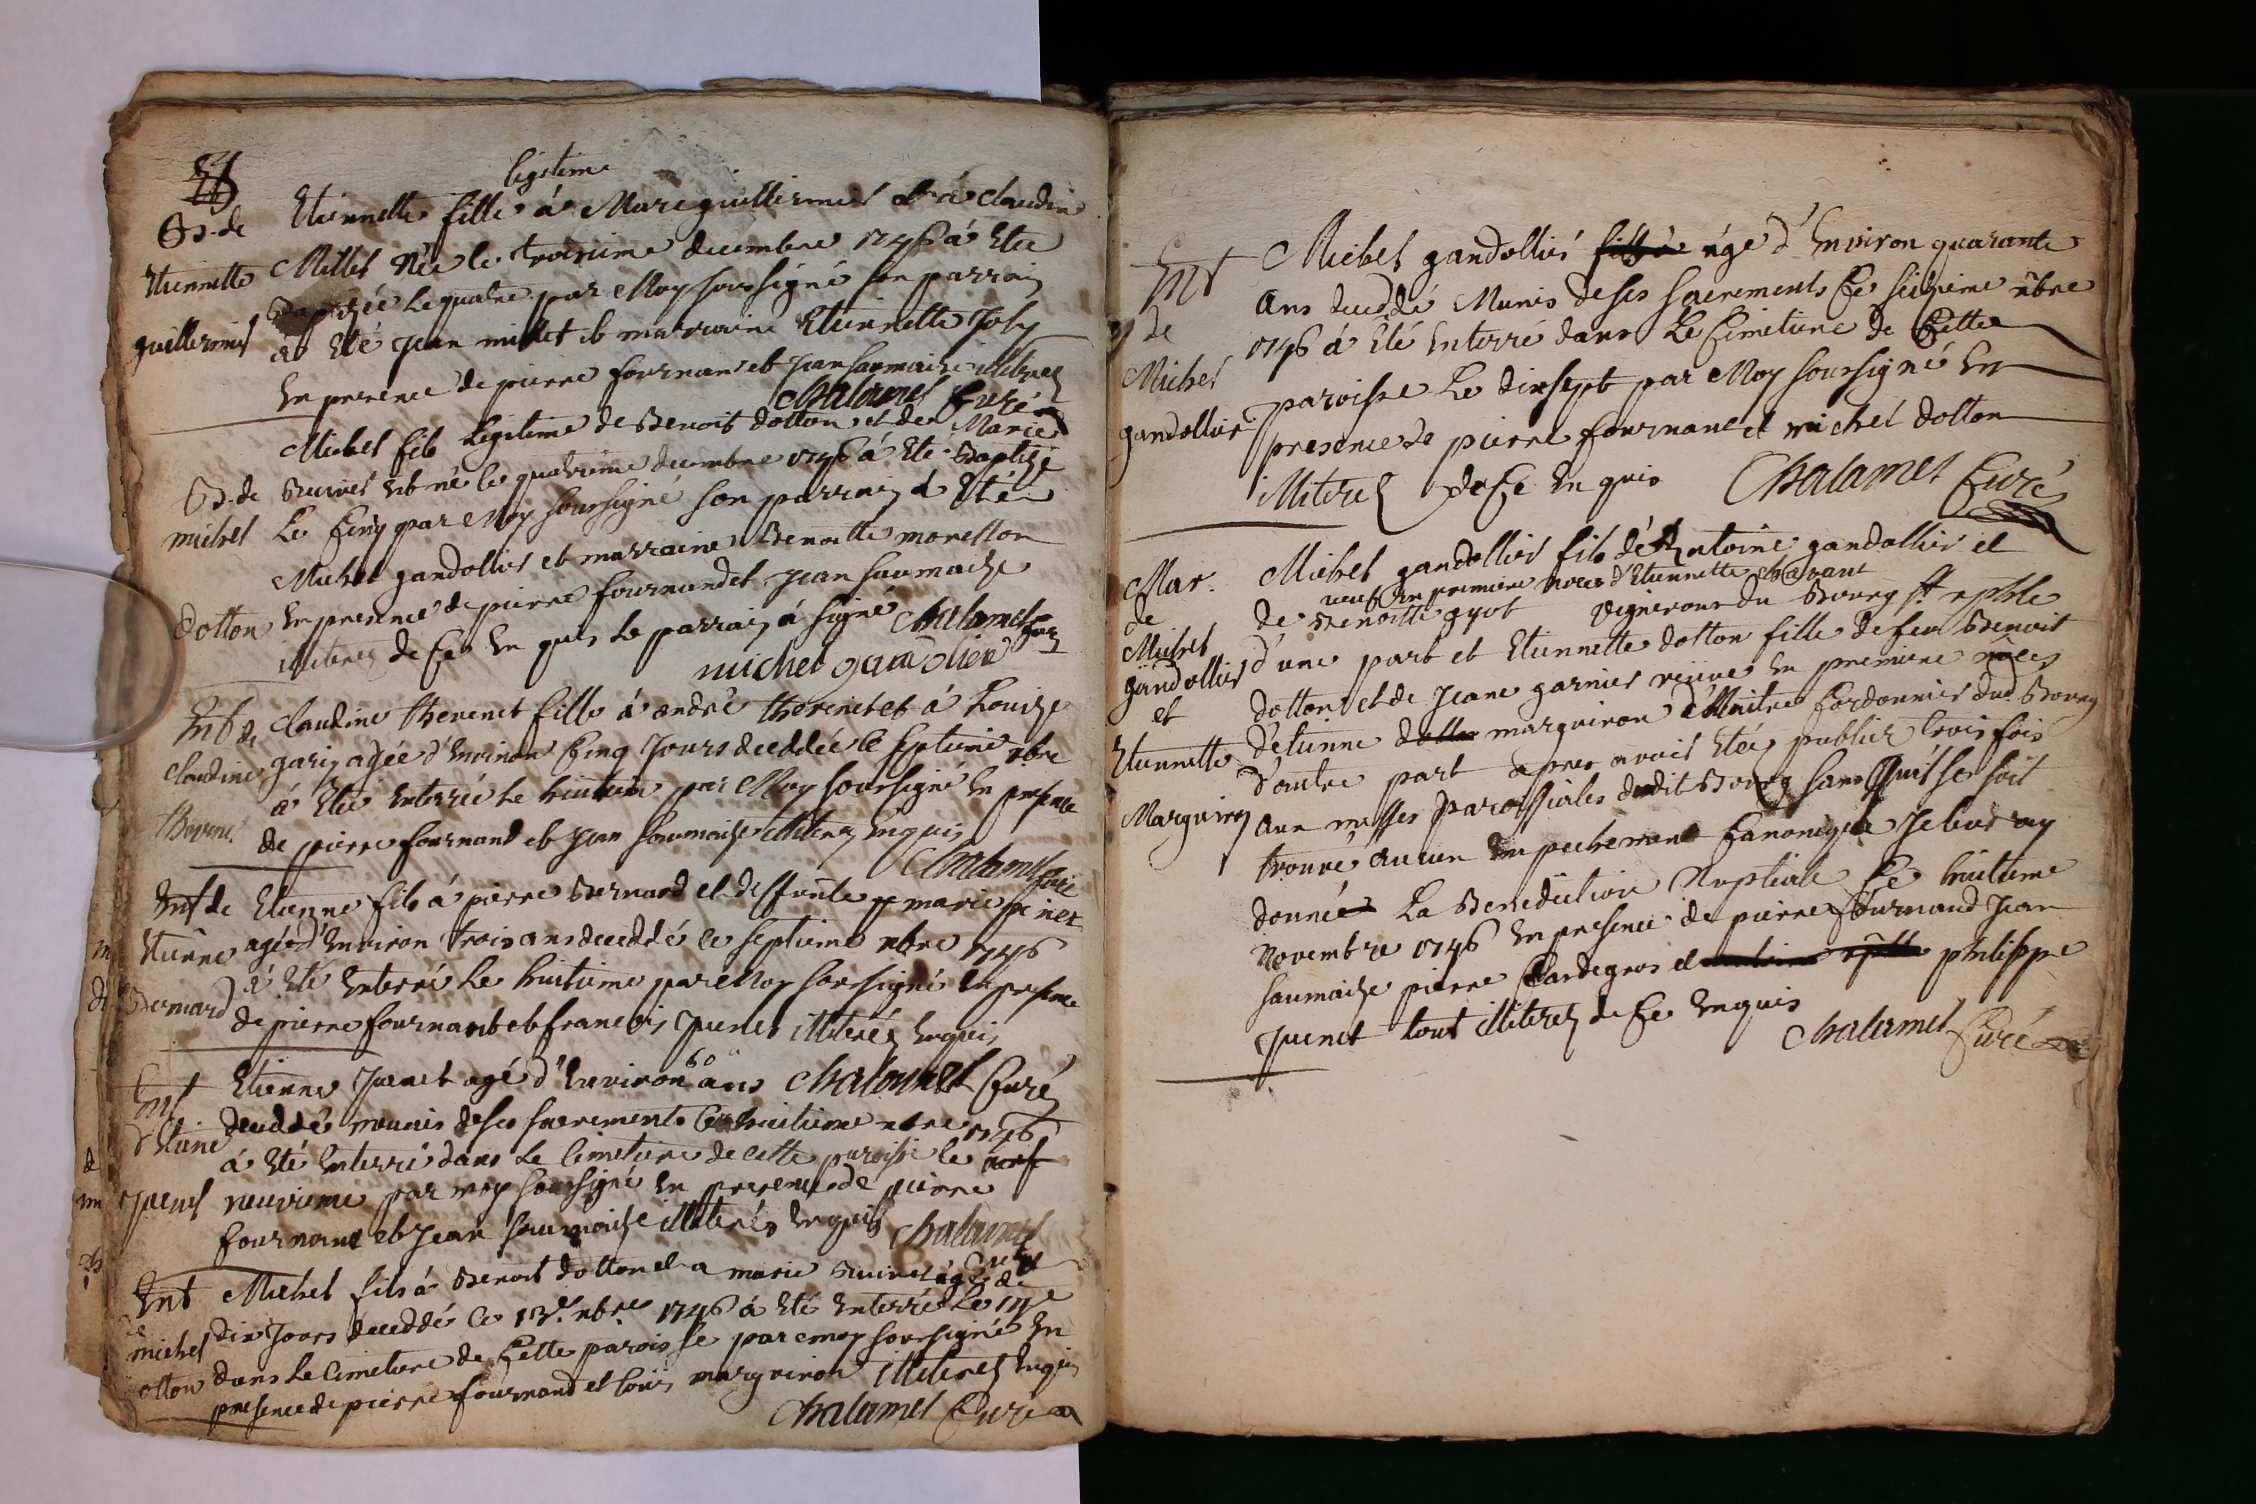 Bs. de
Etiennette
guillermet
legitime
Etiennette fille à Marc guillermet et à claudine
Millet Née le troisieme decembre 1746 à Eté
Baptizée le quatre par Moy soussigné son parrain
a Eté jean millet et marraine Etiennette Joly
En presence de pierre fournand et jean saumaize illiterez
Chalamel Curé
Bs. de
michel
dotton
Michel fils Legitime de Benoit dotton et de Marie
est né le quatrieme decembre 1746 à Eté Baptizé
Le Cinq par Moy soussigné son parrain à Eté
Michel gandollier et marraine Benoitte monetton
En presence de pierre fournand et jean saumaize
illiterez de Ce En quis Le parrain à signé Chalamel Curé
michel gandolier
Ent de
claudine
thevenet
claudine thevenet fille à andré thevenet et à Louize
garin agée d'Environ Cinq Jours decedée le septieme xbre
à Eté Enterrée le huitieme par Moy soussigné En presence
de pierre fournand et jean saumaize illiterez Enquis
Chalamel Curé
Ent de
Etienne
Bernard
Etienne fils à pierre Bernard et deffunte marie
agée d'Environ trois ans decedé le septieme xbre 1746
à Eté Enterré Le huitieme par Moy soussigné En presence
de pierre fournand et francois Junet illiterez Enquis
Ent
d'Etiene
Junet
Etienne Junet agé d'Environ 60 ans Chalamel Curé
decedé munis de ses sacrements le huitieme xbre 1746
à Eté Enterré dans Le Cimetiere de cette paroisse le neuf
neuvieme par moy soussigné En presence de pierre
fournand et jean saumaize illiterez Enquis Chalamel
Curé
Ent
de
michel
otton
Michel fils à Benoit dotton et a marie agé de
dix Jours decedé le 13e xbre 1746 à Eté Enterré Le
dans Le Cimetiere de Cette paroisse par moy soussigné En
presence de pierre fournand et louis marguiron illiterez Enquis
Chalamel Curé
Ent
de
Michel
gandollier
Michel gandollier age d'Environ quarante
ans decedé Munis de ses sacrements Ce seizieme xbre
1746 à Eté Enterré dans Le Cimetiere de Cette
paroisse Le dixsept par Moy soussigné En
presence de pierre fournand et michel dotton
illiterez de Ce En quis Chalamel Curé
Mar.
de
Michel
gandollier
et
Etiennette
Marguiron
Michel gandollier fils d'Antoine gandollier et
veuf En premiere noces d'Etiennette
de Benoitte gyot vigneron du Bourg St
d'une part et Etiennette dotton fille de feu Benoit
dotton et de Jeane garnier veuve En premiere noces
d'etienne marguiron Maitre Cordonnier dud. Bourg
d'autre part apres avoir Eté publiez trois fois
aux messes paroissiales dudit Bourg sans quil se soit
trouvé aucun Empechement Canonique Je leur ay
donnée La Benediction Nuptiale Ce huitieme
Novembre 1746 En presence de pierre fournand Jean
saumaize pierre Cardegros et philippe
Junet tout illiterez de Ce Enquis
Chalamel Curé